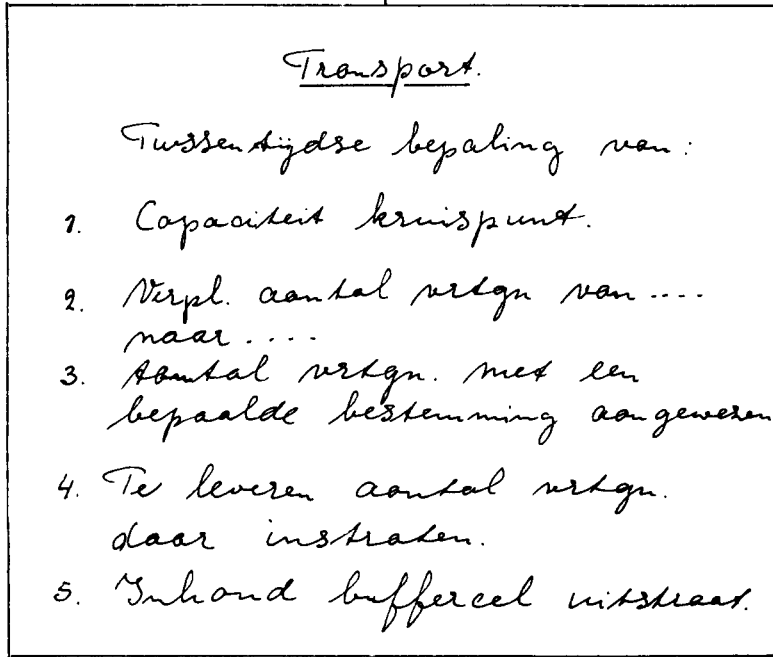 Transport.
Tussentijdse bepaling van:
1. Capaciteit kruispunt.
2. Verpl. aantal vrtgn van ....
naar ....
3. Aantal vrtgn. met een
bepaalde bestemming aangewezen
4. Te leveren aantal vrtgn.
daar instraten.
5. Inhoud buffercel uitstraat.